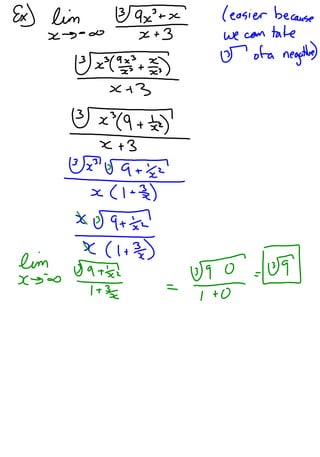 Ex) lim x→-∞ ∛(9x³+x) / (x+3)
(easier because
we can take
∛ of a negative)
∛(x³(9x³/x³ + x/x³)) / (x+3)
∛(x³(9 + 1/x²)) / (x+3)
∛x³ ∛(9 + 1/x²) / (x(1 + 3/x))
x ∛(9 + 1/x²) / (x(1 + 3/x))
lim x→-∞ ∛(9 + 1/x²) / (1 + 3/x) = ∛(9 0) / (1 + 0) = ∛9